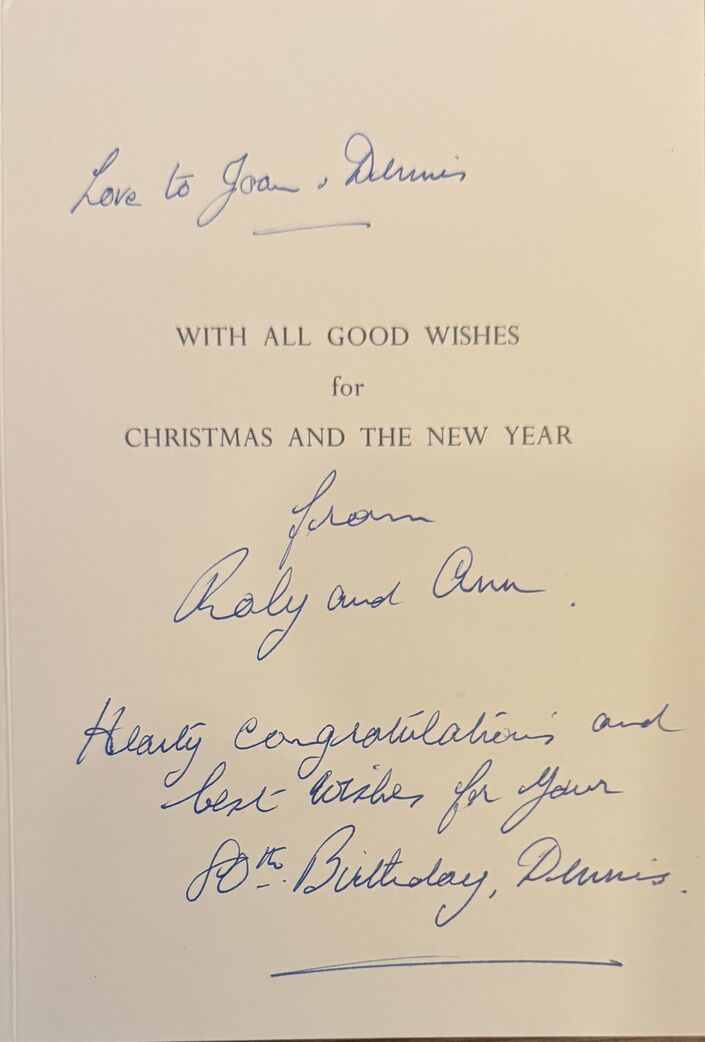 Love to Joan & Dennis
WITH ALL GOOD WISHES
for
CHRISTMAS AND THE NEW YEAR
from
Roly and Ann.
Hearty congratulations and
best wishes for your
80th. Birthday, Dennis.